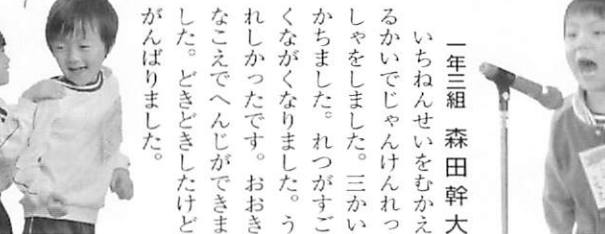 一年三組 森田幹大
いちねんせいをむかえ
るかいでじゃんけんれっ
しゃをしました。三かい
かちました。れつがすご
くながくなりました。う
れしかったです。おおき
なこえでへんじができま
した。どきどきしたけど
がんばりました。